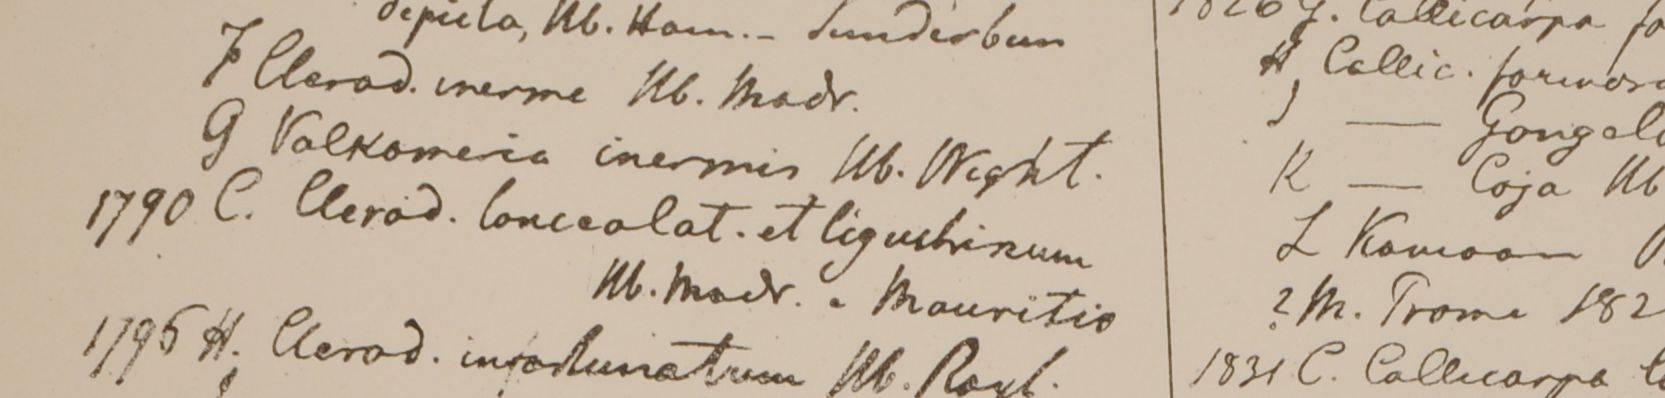 depicta, Hb. Ham. - Sunderbun
F Clerod. inerme Hb. Madr.
G Valkameria inermis Hb. Wight.
1790 C. Clerod. lanceolat. et ligustrinum
Hb. Madr. e Mauritio
1796 H. Clerod. infortunatum Hb. Roxb.
1826 G. Callicarpa
H, Callic. formosa
J — Gongol
K — Coja Hb
L Kamaon
? M. Prome 182
1831 C. Callicarpa